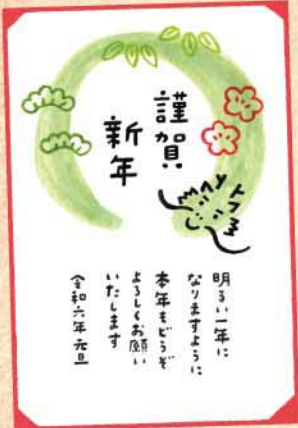 謹賀
新年
明るい一年に
なりますように
本年もどうぞ
よろしくお願い
いたします
令和六年 元旦